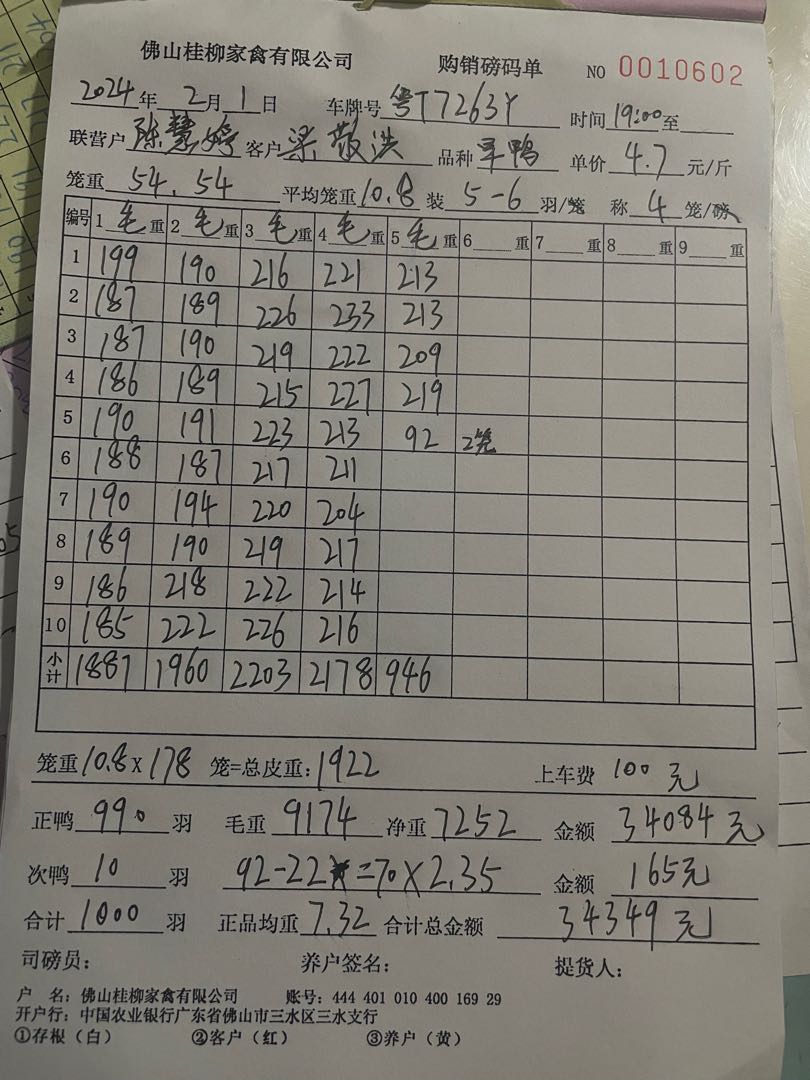 佛山桂柳家禽有限公司 购销磅码单 NO 0010602
2024年2月1日 车牌号 粤T7263Y 时间19:00至
联营户 陈慧婷 客户 梁敬洪 品种 旱鸭 单价 4.7 元/斤
笼重 54.54 平均笼重10.8 装 5-6 羽/笼 称 4 笼/磅
编号 1 毛 重 2 毛 重 3 毛 重 4 毛 重 5 毛 重 6 重 7 重 8 重 9 重
1 199 190 216 221 213
2 187 189 226 233 213
3 187 190 219 222 209
4 186 189 215 227 219
5 190 191 223 213 92 2笼
6 188 187 217 211
7 190 194 220 204
8 189 190 219 217
9 186 218 222 214
10 185 222 226 216
小计 1887 1960 2203 2178 946
笼重 10.8 X 178 笼=总皮重: 1922 上车费 100 元
正鸭 990 羽 毛重 9174 净重 7252 金额 34084 元
次鸭 10 羽 92-22=70×2.35 金额 165元
合计 1000 羽 正品均重 7.32 合计总金额 34349 元
司磅员: 养户签名: 提货人:
户 名: 佛山桂柳家禽有限公司 账号: 444 401 010 400 169 29
开户行: 中国农业银行广东省佛山市三水区三水支行
①存根(白) ②客户(红) ③养户(黄)